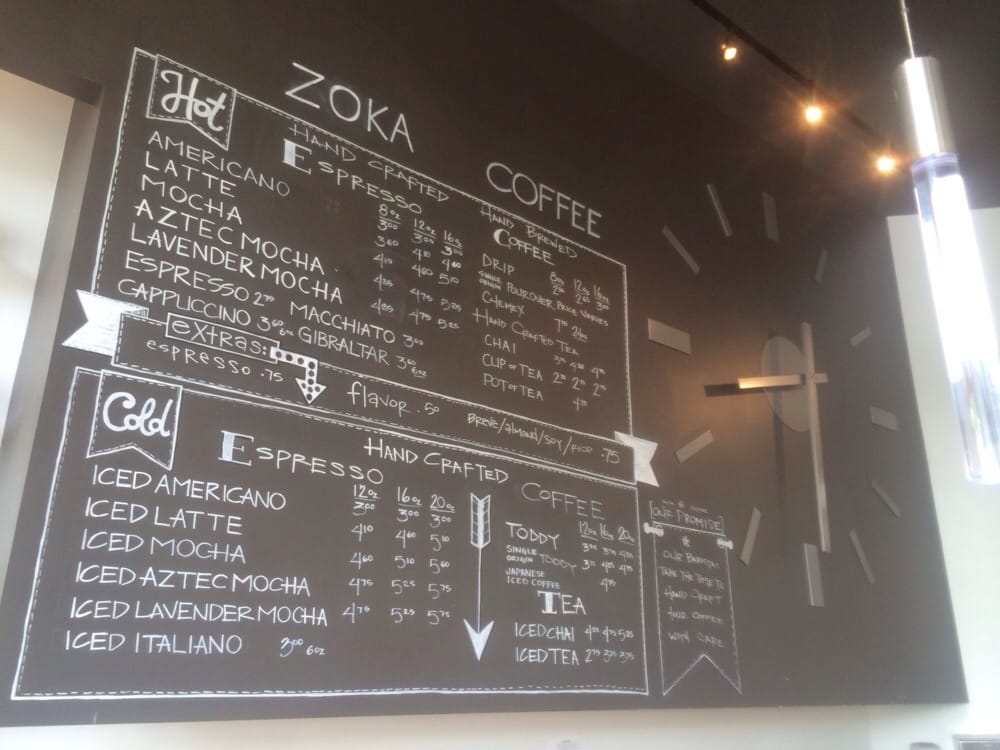 ZOKA COFFEE
Hot
HAND CRAFTED
ESPRESSO
8oz 12oz 16oz
AMERICANO 3.00 3.00 3.00
LATTE 3.60 4.10 4.60
MOCHA 4.10 4.60 5.10
AZTEC MOCHA 4.25 4.75 5.25
LAVENDER MOCHA 4.25 4.75 5.25
ESPRESSO 2.75 MACCHIATO 3.00
CAPPUCCINO 3.60 6oz GIBRALTAR 3.60 6oz
HAND BREWED
COFFEE
8oz 12oz 16oz
DRIP
SINGLE ORIGIN POUROVER PRICE VARIES
CHEMEX
HAND CRAFTED TEA
CHAI
CUP OF TEA
POT OF TEA
extras:
espresso .75
flavor .50
BREVE/almond/soy/rice .75
Cold
HAND CRAFTED
ESPRESSO
12oz 16oz 20oz
ICED AMERICANO 3.00 3.00 3.00
ICED LATTE 4.10 4.60 5.10
ICED MOCHA 4.60 5.10 5.60
ICED AZTEC MOCHA 4.75 5.25 5.75
ICED LAVENDER MOCHA 4.75 5.25 5.75
ICED ITALIANO 3.00 6oz
COFFEE
12oz 16oz 20oz
TODDY
SINGLE ORIGIN TODDY
JAPANESE
ICED COFFEE
TEA
ICED CHAI
ICED TEA
[OUR PROMISE]
OUR BARISTAS
TAKE THE TIME TO
HAND CRAFT
YOUR COFFEE
WITH CARE